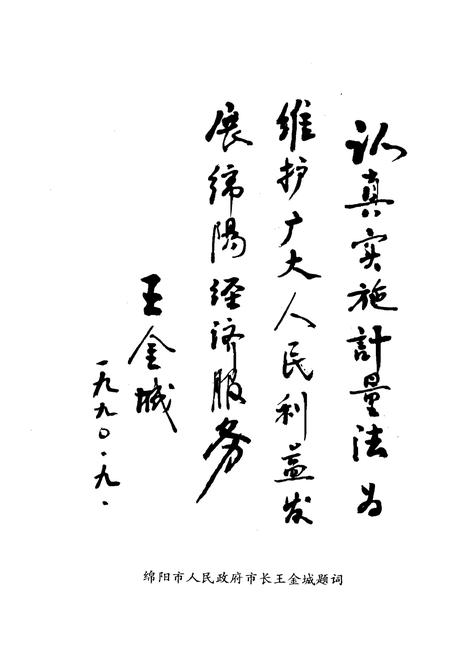 认真实施計量法为
维护广大人民利益发
展绵陽经济服务
王金城
一九九〇.九.
绵阳市人民政府市长王金城题词